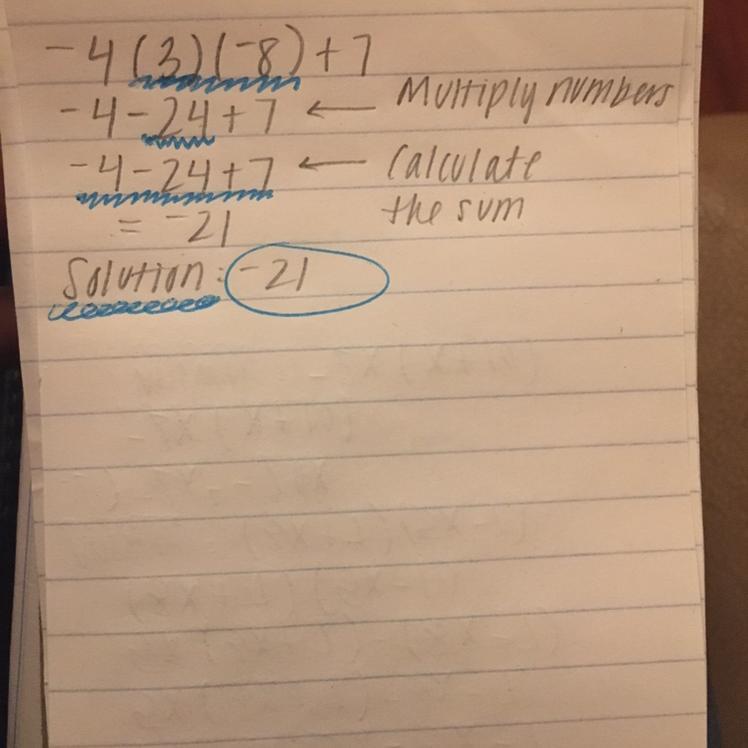 -4(3)(-8)+7
-4-24+7 ← Multiply numbers
-4-24+7 ← Calculate
the sum
= -21
Solution: -21